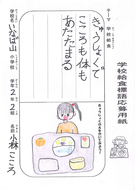 学校給食標語応募用紙
テーマ 学校給食
きゅうしょくで
こころも体も
あたたまる
学校名 いなば山 小学校
学年 2年 2組
名前 小林 こころ